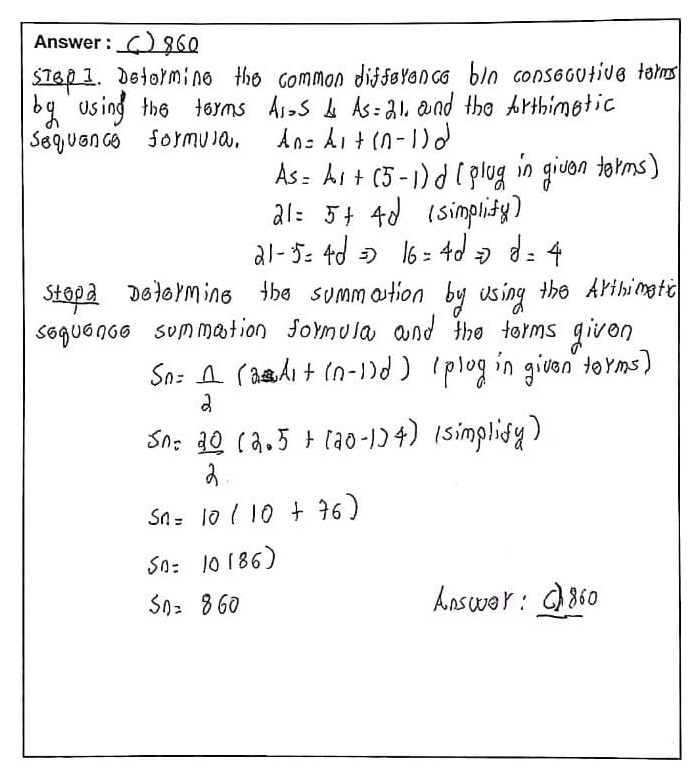 Answer : C) 860
Step 1. Determine the common difference b/n consecutive terms
by using the terms A1=5 & A5=21, and the Arthimetic
sequence formula. An= A1 + (n-1)d
A5= A1 + (5-1)d (plug in given terms)
21= 5+ 4d (simplify)
21-5=4d => 16=4d => d=4
Step2 Determine the summation by using the Arthimetic
sequence summation formula and the terms given
Sn= n/2 (2 A1+(n-1)d) (plug in given terms)
Sn= 20/2 (2.5 + (20-1)4) (simplify)
Sn= 10 (10 + 76)
Sn= 10(86)
Sn= 860 Answer: C) 860